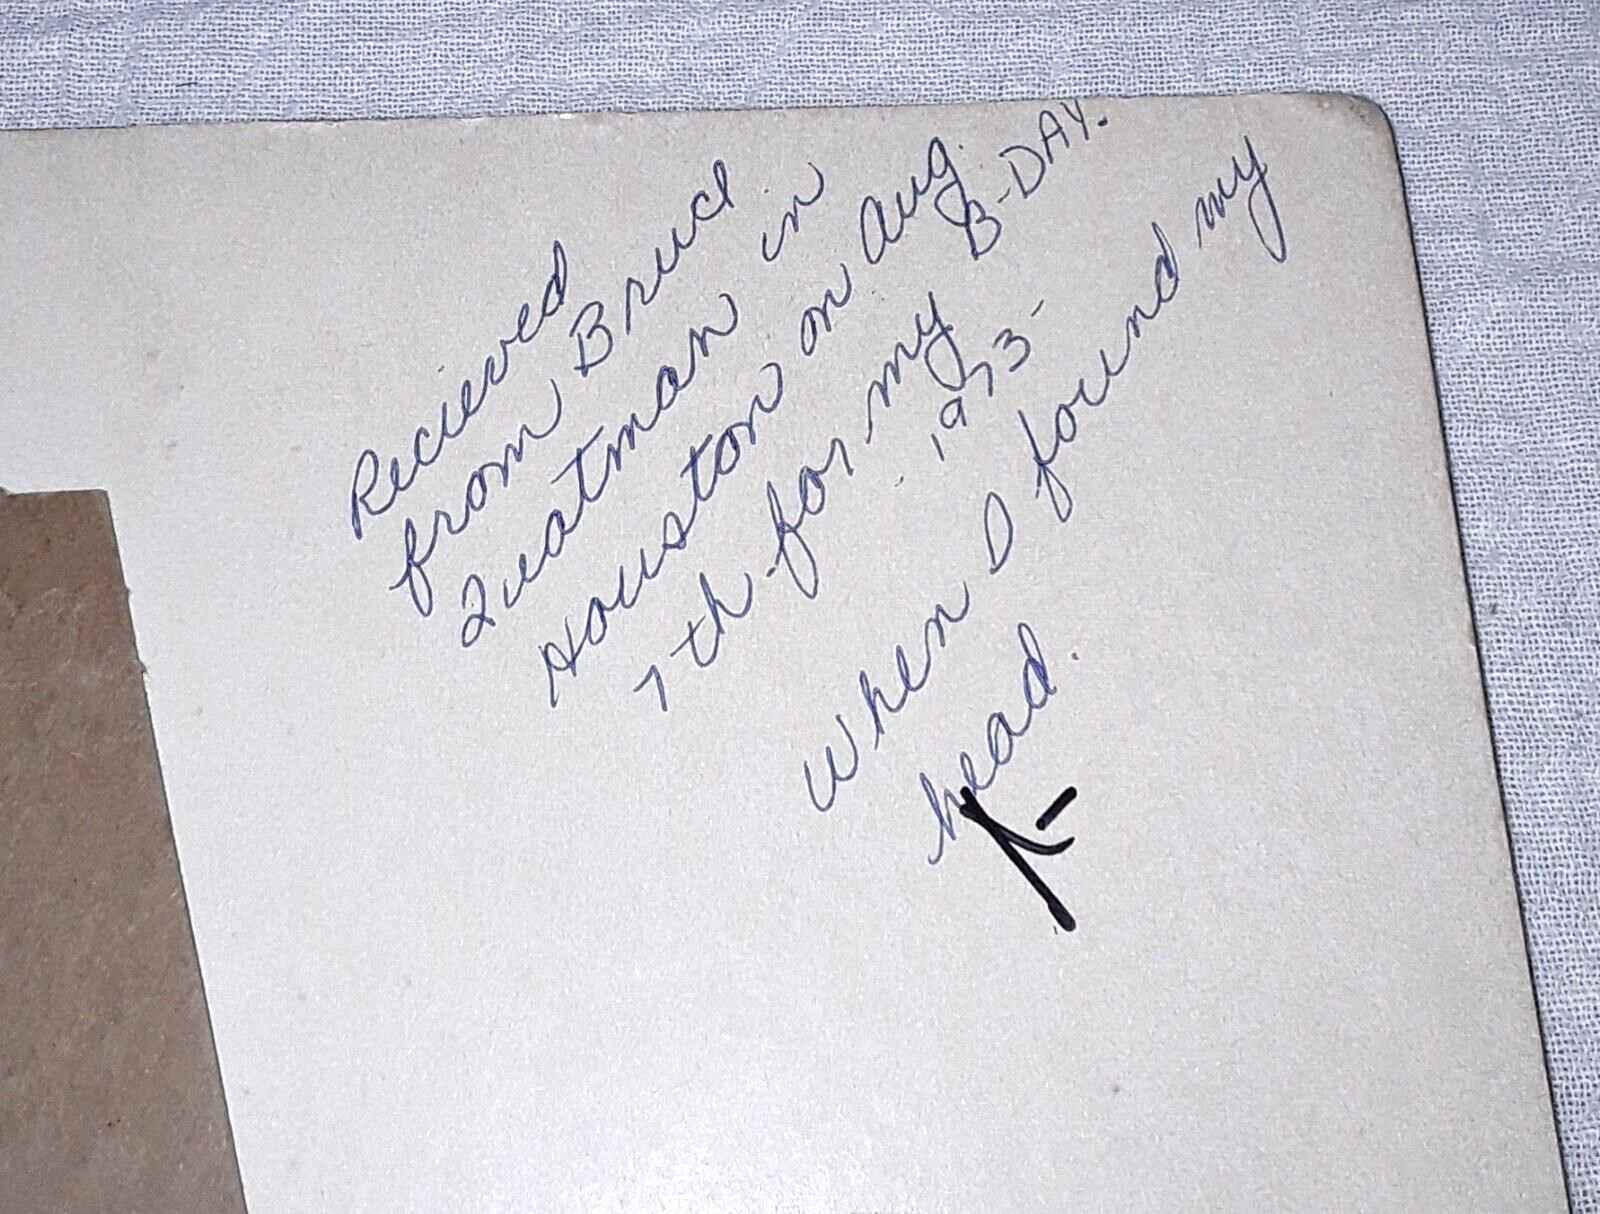 Recieved
from Bruce
Quatman in
Houston on Aug.
7th for my B-DAY.
1973-
When I found my
head.
K-